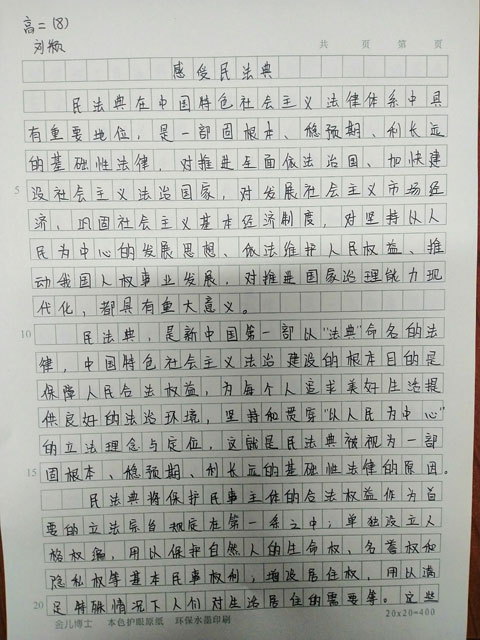 高二(8)
刘颖
共 页 第 页
感受民法典
民法典在中国特色社会主义法律体系中具
有重要地位，是一部固根本、稳预期、利长远
的基础性法律，对推进全面依法治国、加快建
5 设社会主义法治国家，对发展社会主义市场经
济、巩固社会主义基本经济制度，对坚持以人
民为中心的发展思想、依法维护人民权益、推
动我国人权事业发展，对推进国家治理能力现
代化，都具有重大意义。
10 民法典，是新中国第一部以“法典”命名的法
律，中国特色社会主义法治建设的根本目的是
保障人民合法权益，为每个人追求美好生活提
供良好的法治环境，坚持和贯穿“以人民为中心”
的立法理念与定位，这就是民法典被视为一部
15 固根本、稳预期、利长远的基础性法律的原因。
民法典将保护民事主体的合法权益作为首
要的立法宗旨规定在第一条之中；单独设立人
格权编，用以保护自然人的生命权、名誉权和
隐私权等基本民事权利，增设居住权，用以满
20 足特殊情况下人们对生活居住的需要等。这些
会儿博士 本色护眼原纸 环保水墨印刷 20x20=400